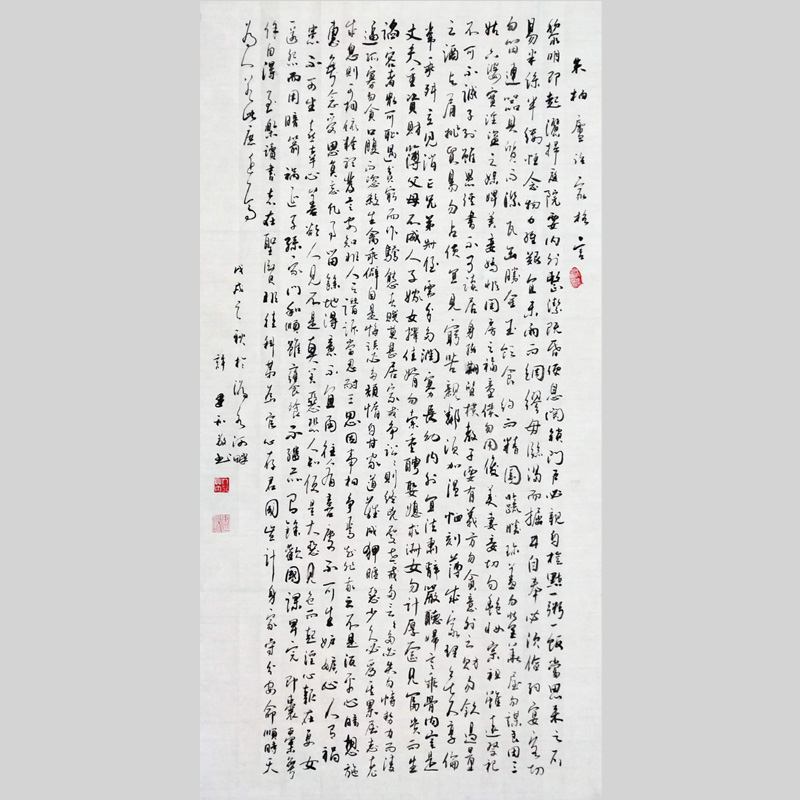 朱柏廬治家格言
黎明即起灑掃庭院要內外整潔既昏便息關鎖門戶必親自檢點一粥一飯當思來之不
易半絲半縷恒念物力維艱宜未雨而綢繆毋臨渴而掘井自奉必須儉約宴客切
勿留連器具質而潔瓦缶勝金玉飲食約而精園蔬勝珍羞勿營華屋勿謀良田三
姑六婆實淫盜之媒婢美妾嬌非閨房之福童僕勿用俊美妻妾切勿艷妝宗祖雖遠祭祀
不可不誠子孫雖愚經書不可不讀居身務期質樸教子要有義方勿貪意外之財勿飲過量
之酒與肩挑貿易勿占便宜見窮苦親鄰須加溫恤刻薄成家理無久享倫
常乖舛立見消亡兄弟叔侄需分多潤寡長幼內外宜法肅辭嚴聽婦言乖骨肉豈是
丈夫重資財薄父母不成人子嫁女擇佳婿勿索重聘娶媳求淑女勿計厚奩見富貴而生
諂容者最可恥遇貧窮而作驕態者賤莫甚居家戒爭訟訟則終凶處世戒多言言多必失勿恃勢力而凌
逼孤寡勿貪口腹而恣殺生禽乖僻自是悔誤必多頹惰自甘家道難成狎暱惡少久必受其累屈志老
成急則可相依輕聽發言安知非人之譖訴當忍耐三思因事相爭焉知非我之不是須平心暗想施
惠無念受恩莫忘凡事當留餘地得意不宜再往人有喜慶不可生妒嫉心人有禍
患不可生喜幸心善欲人見不是真善惡恐人知便是大惡見色而起淫心報在妻女
匿怨而用暗箭禍延子孫家門和順雖饔飧不繼亦有餘歡國課早完即囊橐無
餘自得至樂讀書志在聖賢非徒科第為官心存君國豈計身家守分安命順時聽天
為人若此庶近乎焉
戊戌之秋於